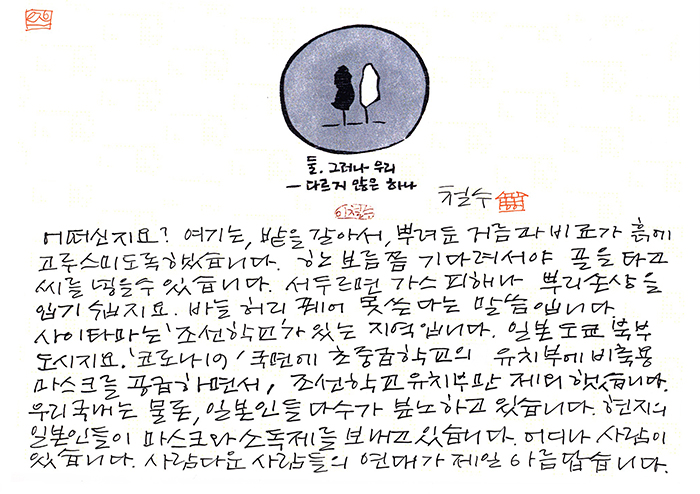 둘. 그러나 우리
— 다르지 않은 하나
철수
이철수
어떠신지요? 여기는, 밭을 갈아서, 뿌려둔 거름과 비료가 흙에
고루스미도록했습니다. 한 보름쯤 기다려서야 골을 타고
씨를 넣을수 있습니다. 서두르면 가스 피해나 뿌리손상을
입기 쉽지요. 바늘 허리 꿰어 못쓴다는 말씀입니다.
사이타마는 '조선학교'가 있는 지역입니다. 일본 도쿄 북부
도시지요. '코로나19' 국면에 초중급학교의 유치부에 비축용
마스크를 공급하면서, 조선학교유치부만 제외했습니다.
우리국내는 물론, 일본인들 다수가 분노하고 있습니다. 현지의
일본인들이 마스크와 소독제를 보내고 있습니다. 어디나 사람이
있습니다. 사람다운 사람들의 연대가 제일 아름답습니다.